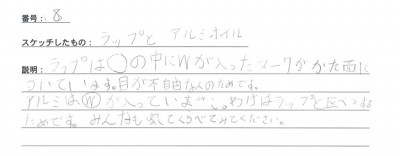 番号： 8
スケッチしたもの： ラップと アルミホイル
説明： ラップは○の中にWが入ったマークがかた面に
ついています。目が不自由な人のためです。
アルミはⓌが入っていません。わけはラップと区べつする
ためです。みんなも家でくらべてみてください。